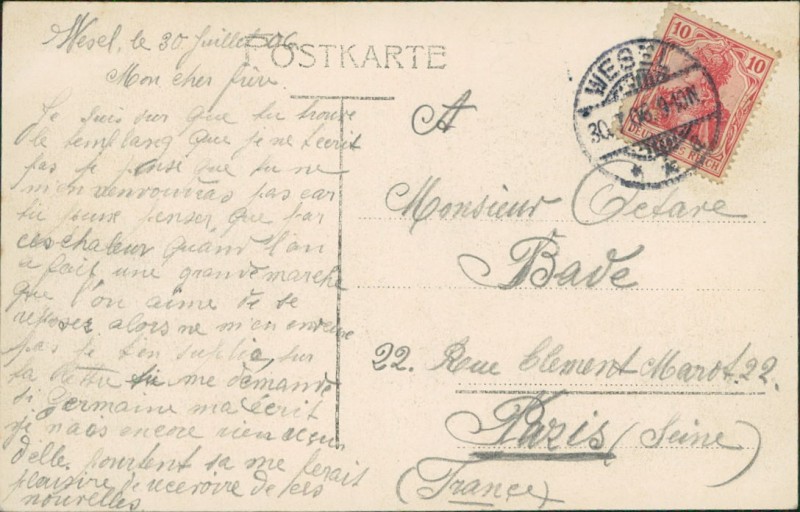 POSTKARTE
Wesel, le 30 Juillet 06
Mon cher frère
Je suis sur que tu trouve
le temp lang que je ne t'ecrit
pas je pense que tu ne
m'en venvoudras pas car
tu peux penser que par
ces chaleur quand l'on
a fait une grande marche
que l'on aime de se
reposer alors ne m'en
pas je t'en suplie, sur
ta lettre tu me demande
si Germaine ma écrit
je n'aos encore rien
d'elle. pourtent sa me ferait
plaisire de de ces
nouvelles.
A
Monsieur Octave
Bade
22. Rue Clement Marot. 22.
Paris (Seine)
(France)
WESEL
30.7.06. 9-10N
10 10
DEUTSCHES REICH